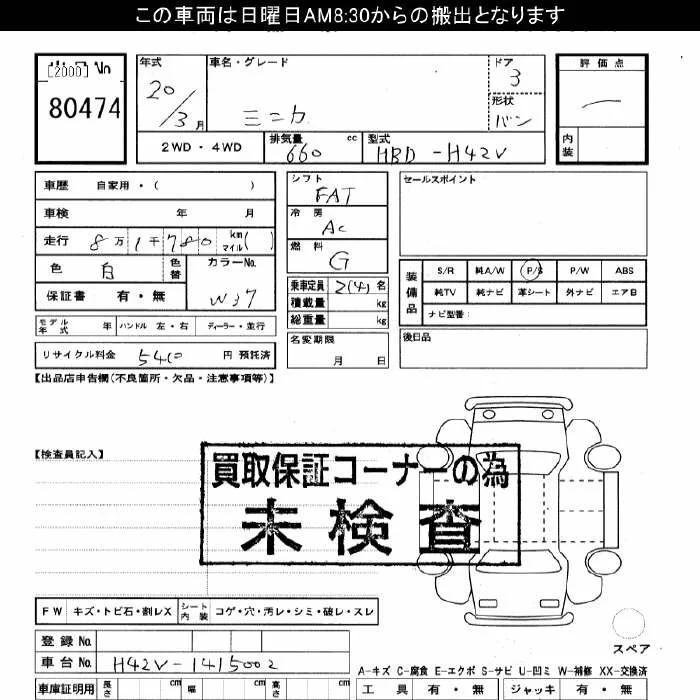 この車両は日曜日AM8:30からの搬出となります
[2000]
80474
年式 20/3月
車名・グレード ミニカ
ドア 3
形状 バン
評価点
内装
2WD・4WD
排気量 660 cc
型式 HBD-H42V
車歴 自家用・( )
車検 年 月
走行 8万1千780 km マイル( )
色 白 色替
カラーNo. W37
保証書 有・無
モデル年式 年 ハンドル 左・右 ディーラー・並行
リサイクル料金 5410 円 預託済
シフト FAT
冷房 AC
燃料 G
乗車定員 2(4)名
積載量 kg
総重量 kg
名変期限 月 日
セールスポイント
装備品
S/R 純A/W P/S P/W ABS
純TV 純ナビ 革シート 外ナビ エアB
ナビ型番:
後日品
【出品店申告欄(不良箇所・欠品・注意事項等)】
【検査員記入】
買取保証コーナーの為
未検査
FW キズ・トビ石・割レX シート内装 コゲ・穴・汚レ・シミ・破レ・スレ
登録No.
車台No. H42V-1415002
スペア
A-キズ C-腐食 E-エクボ S-サビ U-凹ミ W-補修 XX-交換済
車庫証明用 長さ cm 幅 cm 高さ cm
工具 有・無 ジャッキ 有・無